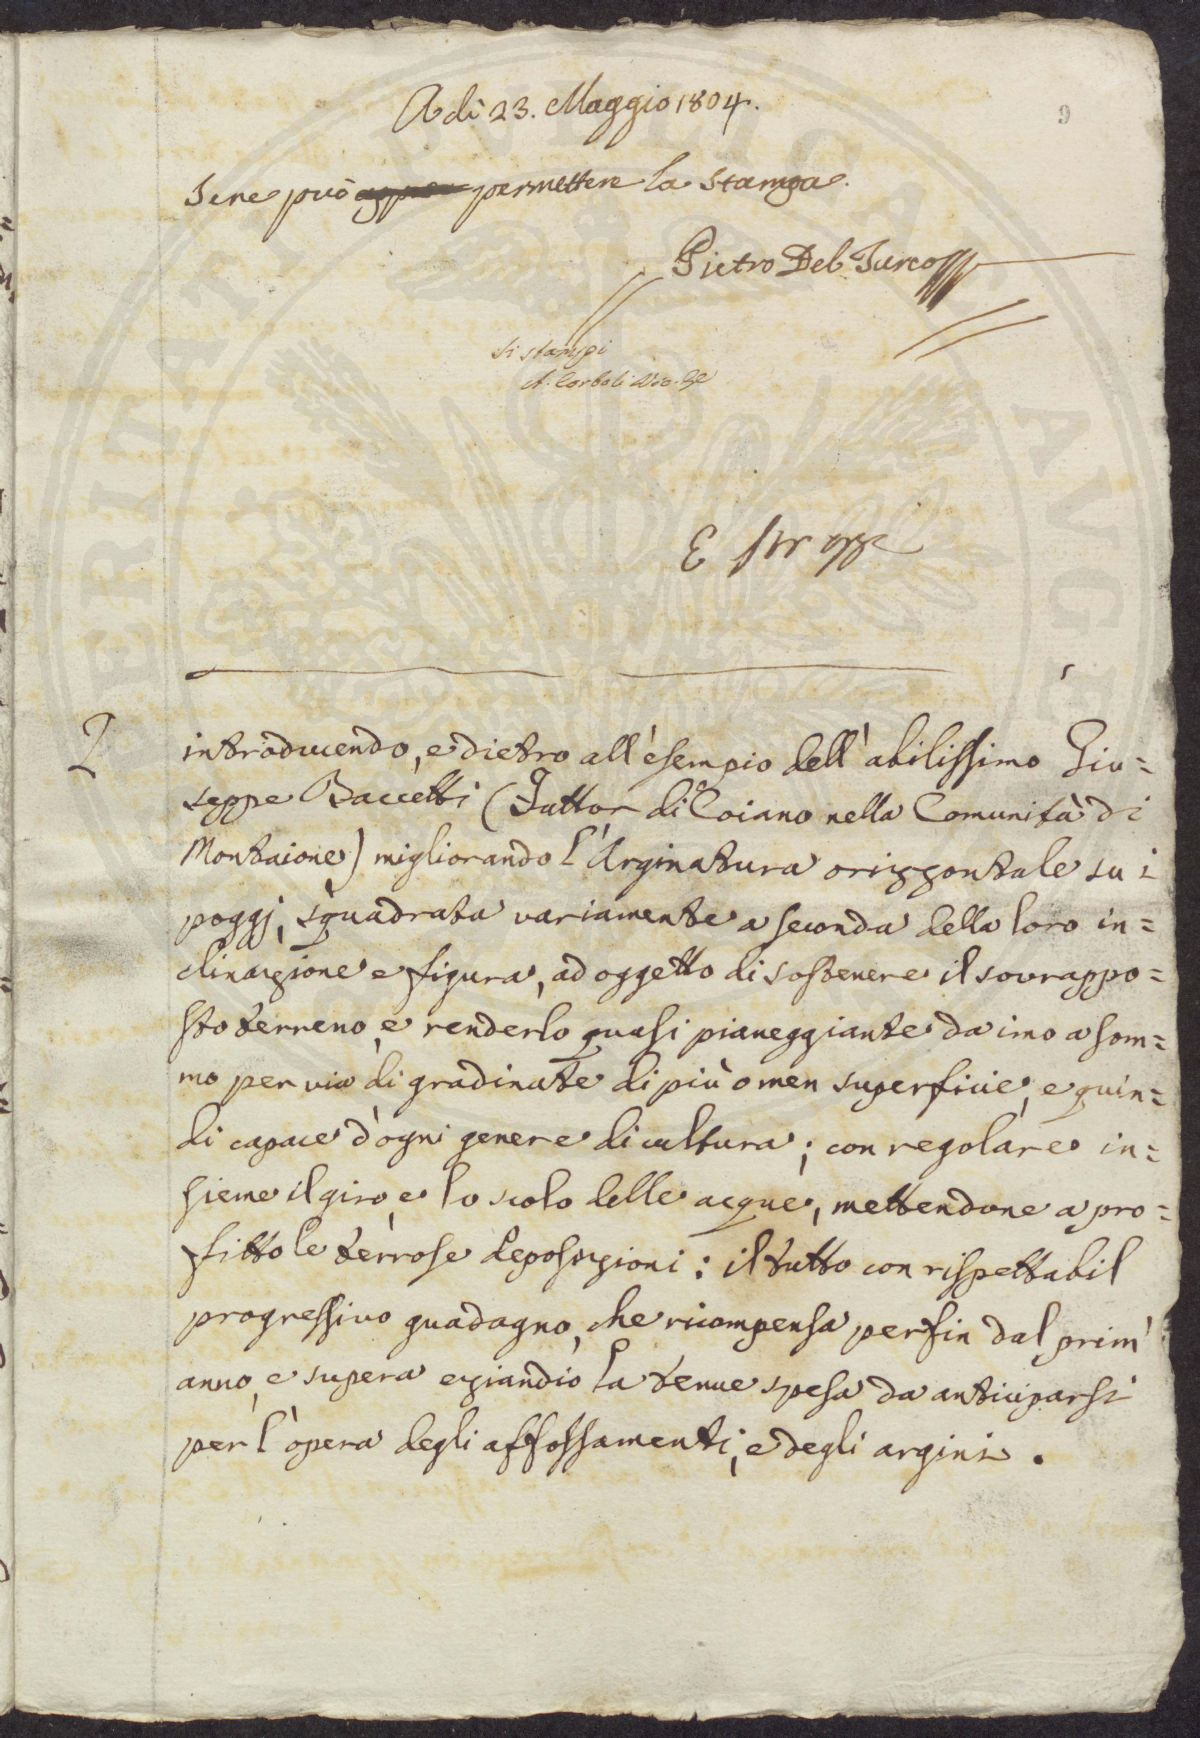 A dì 23. Maggio 1804.
9
Se ne può permettere la stampa.
Pietro Del Turco
Si stampi
A. Corboli
E
2
introducendo, e dietro all'esempio dell'abilissimo Giu=
seppe Baccetti (Fattor di Coiano nella Comunità di
Montaione) migliorando l'Arginatura orizzontale su i
poggj, squadrata variamente a seconda della loro in=
clinazione e figura, ad oggetto di sostenere il sovrappo=
sto terreno, e renderlo quasi pianeggiante da imo a som=
mo per via di gradinate di più o men superficie, e quin=
di capace d'ogni genere di cultura; con regolare in=
sieme il giro, e lo scolo delle acque, mettendone a pro=
fitto le terrose deposizioni: il tutto con rispettabil
progressivo guadagno, che ricompensa perfin dal prim'
anno, e supera eziandio la tenue spesa da anticiparsi
per l'opera degli affossamenti, e degli argini.
VERITATI PVBLICAE AVGE